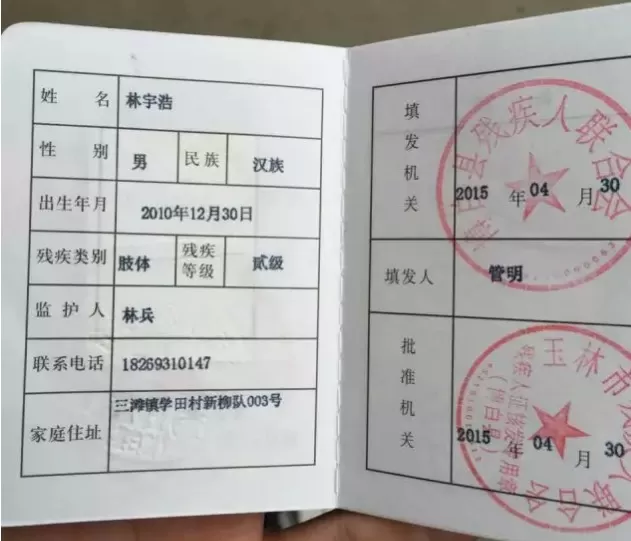 姓 名 林宇浩
性 别 男 民族 汉族
出生年月 2010年12月30日
残疾类别 肢体 残疾等级 贰级
监 护 人 林兵
联系电话 18269310147
家庭住址 三滩镇学田村新柳队003号
填发机关
县残疾人联合会
2015 年 04 月 30
填发人 管明
批准机关
玉林市残疾人联合会
残疾人证核发专用章
(博白县)
2015 年 04 月 30